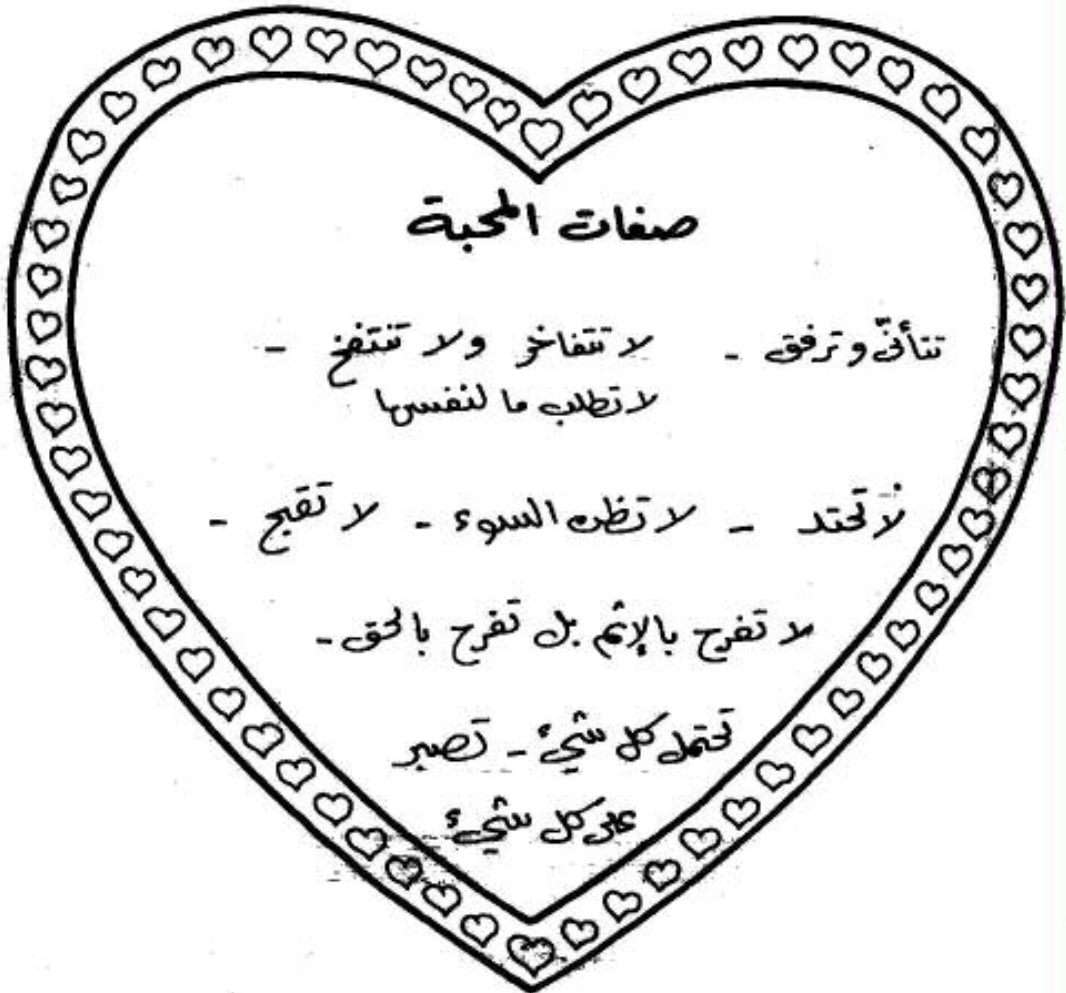 صفات المحبة
تتأنّى وترفق - لا تتفاخر ولا تنتفخ -
لا تطلب ما لنفسها
لا تحتد - لا تظن السوء - لا تقبح -
لا تفرح بالإثم بل تفرح بالحق -
تحتمل كل شيء - تصبر
على كل شيء